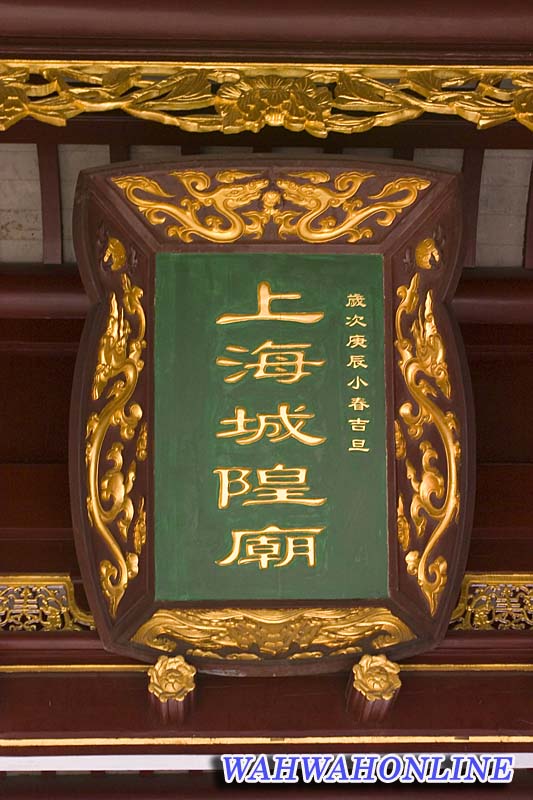 歲次庚辰小春吉旦
上海城隍廟
WAHWAHONLINE